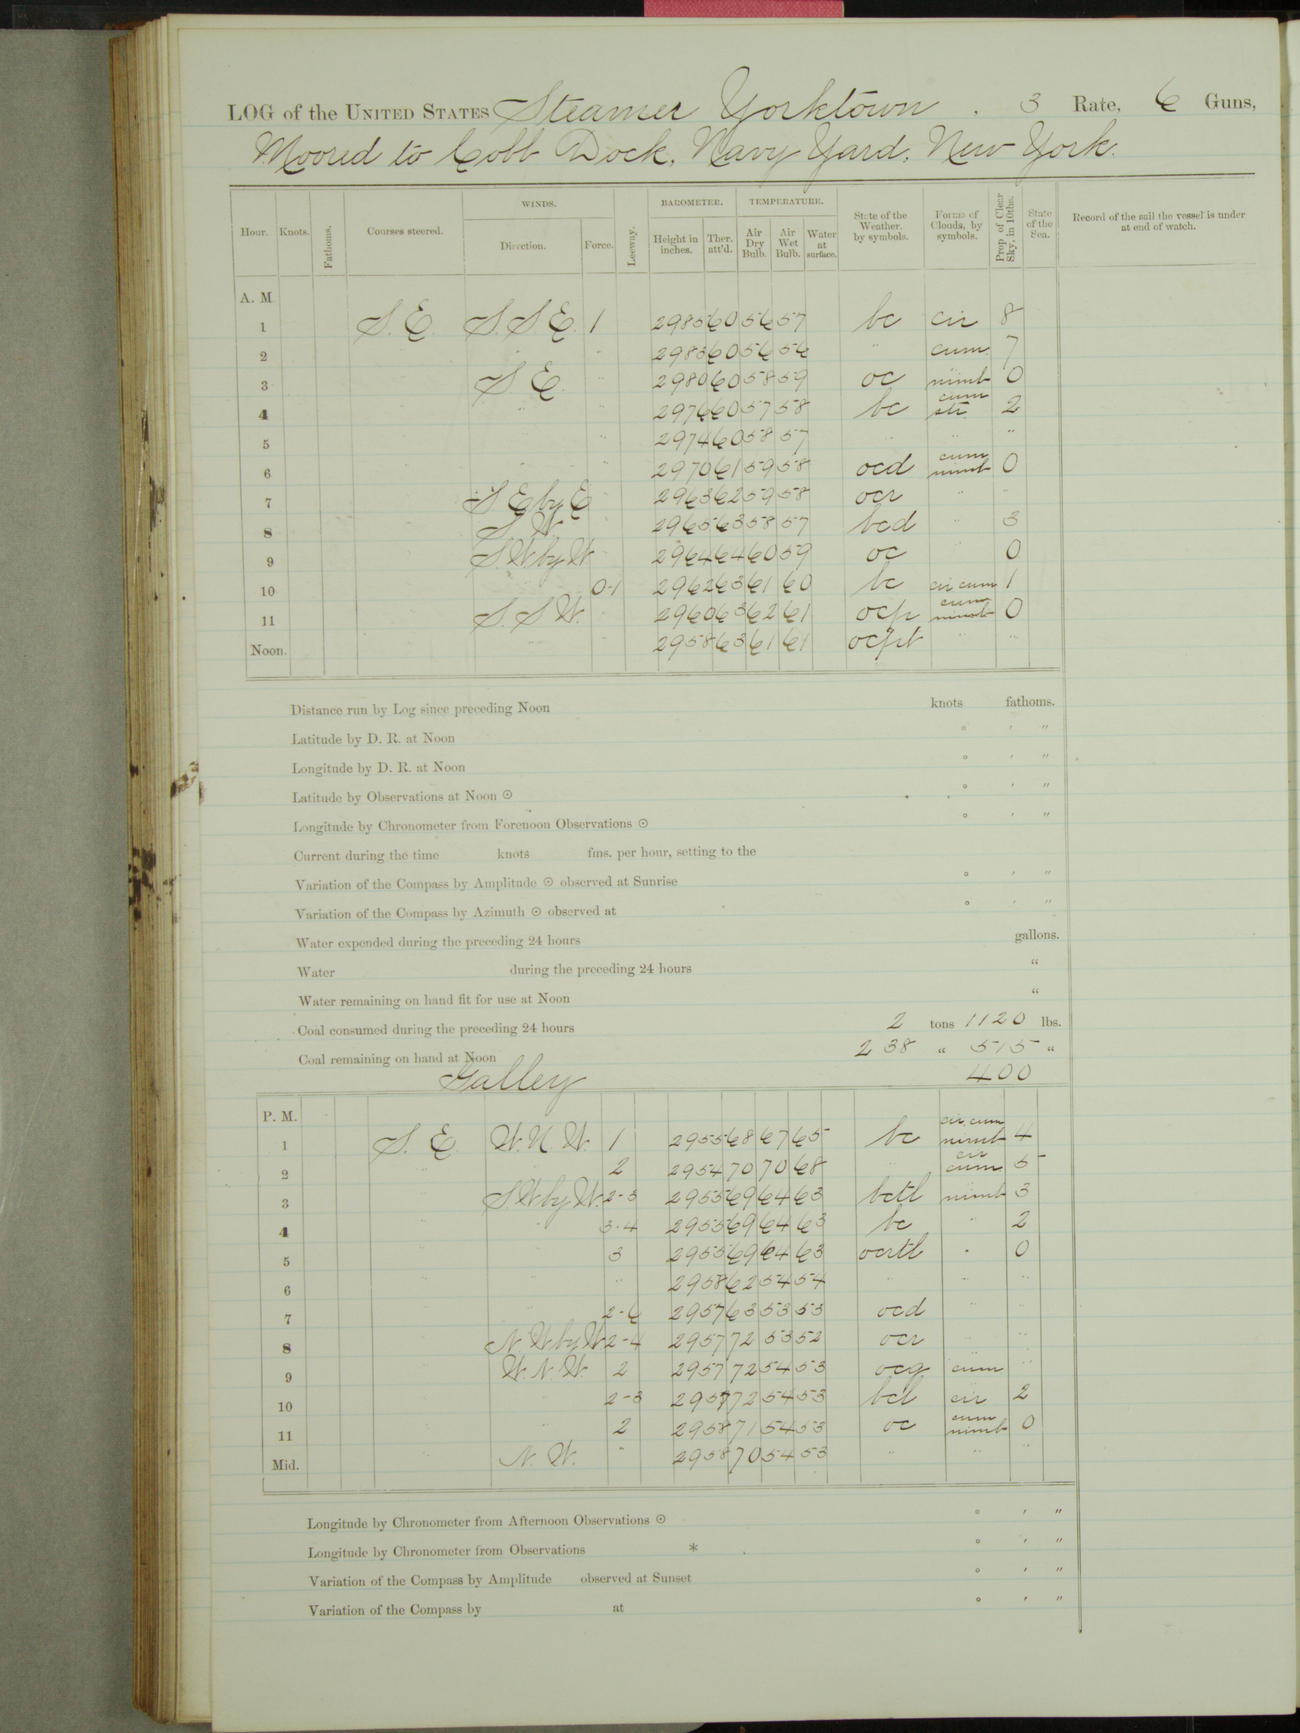 LOG of the UNITED STATES Steamer Yorktown . 3 Rate, 6 Guns,
Moored to Cobb Dock, Navy Yard, New York.
Hour. Knots. Fathoms. Courses steered. WINDS. Direction. Force. Leeway. BAROMETER. Height in inches. Ther. att'd. TEMPERATURE. Air Dry Bulb. Air Wet Bulb. Water at surface. State of the Weather. by symbols. Forms of Clouds, by symbols. Prop. of Clear Sky, in 10ths. State of the Sea. Record of the sail the vessel is under at end of watch.
A. M.
1 S.E. S.S.E. 1 2985 60 56 57 bc cir 8
2 " " 2983 60 56 56 " cum 7
3 S.E. " 2980 60 58 59 oc nimb 0
4 " " 2976 60 57 58 bc cum str 2
5 " 2974 60 58 57 " " "
6 " " 2970 61 59 58 ocd cum nimb 0
7 S.E. by E 2963 62 59 58 ocr " "
8 S.W. 2965 63 58 57 bcd " 3
9 S.W. by W 2964 64 60 59 oc " 0
10 0-1 2962 63 61 60 bc cir cum 1
11 S.S.W. " 2960 63 62 61 ocp cum nimb 0
Noon. 2958 63 61 61 ocpt " "
Distance run by Log since preceding Noon knots fathoms.
Latitude by D. R. at Noon ° ' "
Longitude by D. R. at Noon ° ' "
Latitude by Observations at Noon ☉ ° ' "
Longitude by Chronometer from Forenoon Observations ☉ ° ' "
Current during the time knots fms. per hour, setting to the
Variation of the Compass by Amplitude ☉ observed at Sunrise ° ' "
Variation of the Compass by Azimuth ☉ observed at ° ' "
Water expended during the preceding 24 hours gallons.
Water during the preceding 24 hours "
Water remaining on hand fit for use at Noon "
Coal consumed during the preceding 24 hours 2 tons 1120 lbs.
Coal remaining on hand at Noon 238 " 515 "
Galley 400
P. M.
1 S.E. W.N.W. 1 2955 68 67 65 bc cir cum nimb 4
2 " 2 2954 70 70 68 " cir cum 5
3 " S.W. by W. 2-3 2955 69 64 63 bctl nimb 3
4 " " 3-4 2955 69 64 63 bc " 2
5 " 3 2955 69 64 63 ocrtl " 0
6 " " " 2958 62 54 54 " " "
7 " 2-6 2957 63 53 53 ocd " "
8 N.W. by W 2-4 2957 72 53 52 ocr "
9 W.N.W. 2 2957 72 54 53 ocg cum "
10 2-3 2957 72 54 53 bcl cir 2
11 " 2 2958 71 54 53 oc cum nimb 0
Mid. " N.W. " 2958 70 54 53 " " "
Longitude by Chronometer from Afternoon Observations ☉ ° ' "
Longitude by Chronometer from Observations * ° ' "
Variation of the Compass by Amplitude observed at Sunset ° ' "
Variation of the Compass by at ° ' "